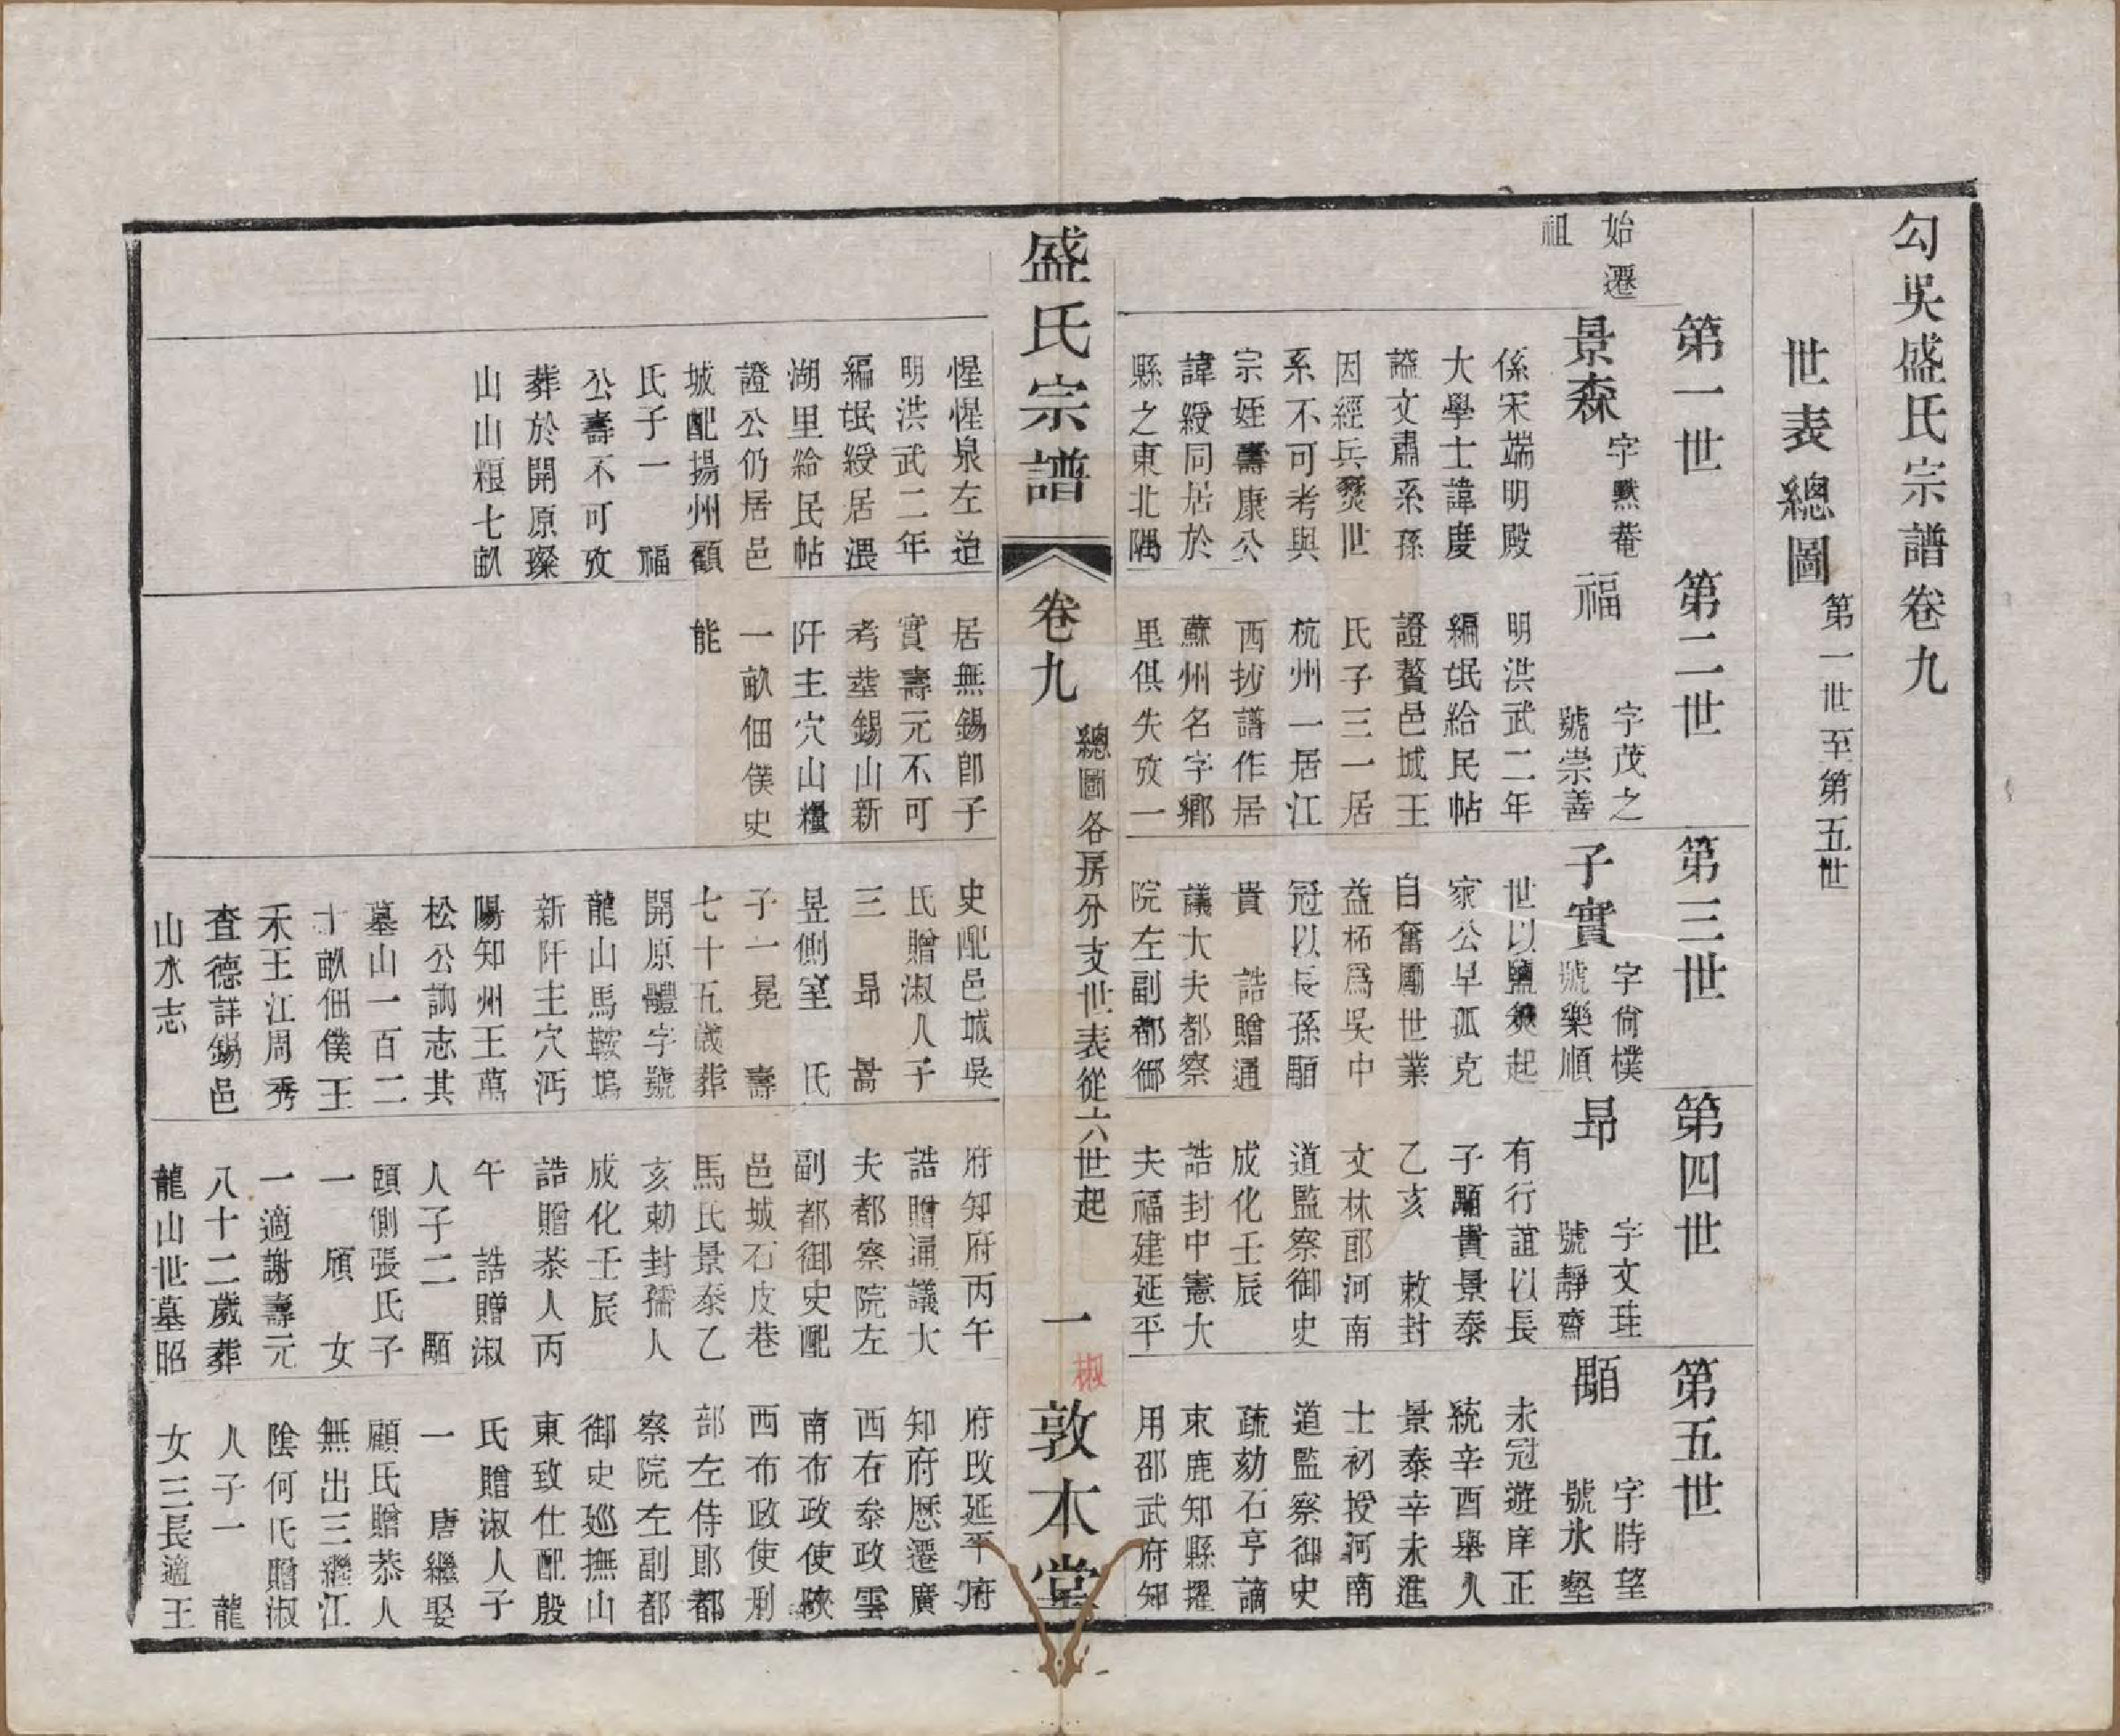 勾吳盛氏宗譜卷九
世表總圖 第一世至第五世
第一世
第二世
第三世
第四世
第五世
始遷
祖
景森 字默菴
係宋端明殿
大學士諱度
謚文肅系孫
因經兵燹世
系不可考與
宗姪壽康公
諱綬同居於
縣之東北隅
惺惺泉左迨
明洪武二年
編氓綬居淐
湖里給民帖
證公仍居邑
城配揚州顧
氏子一 福
公壽不可攷
葬於開原璨
山山粮七畝
福 字茂之
號崇善
明洪武二年
編氓給民帖
證贅邑城王
氏子三一居
杭州一居江
西抄譜作居
蘇州名字鄉
里俱失攷一
居無錫卽子
實壽元不可
考塟錫山新
阡主穴山糧
一畝佃僕史
能
子實 字尙樸
號樂順
世以鹽筴起
家公早孤克
自奮勵世業
益柘爲吳中
冠以長孫顒
貴 誥贈通
議大夫都察
院左副都御
史配邑城吳
氏贈淑人子
三 昻 暠
昱側室 氏
子一晃 壽
七十五歲葬
開原體字號
龍山馬鞍塢
新阡主穴沔
陽知州王萬
松公詶志其
墓山一百二
十畝佃僕王
禾王江周秀
查德詳錫邑
山水志
昻 字文珪
號靜齋
有行誼以長
子顒貴景泰
乙亥 敕封
文林郎河南
道監察御史
成化壬辰
誥封中憲大
夫福建延平
府知府丙午
誥贈通議大
夫都察院左
副都御史配
邑城石皮巷
馬氏景泰乙
亥勅封孺人
成化壬辰
誥贈恭人丙
午 誥贈淑
人子二 顒
頤側張氏子
一 頎 女
一適謝壽元
八十二歲葬
龍山世墓昭
顒 字時望
號氷壑
未冠遊庠正
統辛酉舉人
景泰辛未進
士初授河南
道監察御史
疏劾石亨謫
束鹿知縣擢
用邵武府知
府改延平府
知府歷遷廣
西右叅政雲
南布政使陝
西布政使刑
部左侍郎都
察院左副都
御史廵撫山
東致仕配殷
氏贈淑人子
一 唐繼娶
顧氏贈恭人
無出三繼江
陰何氏贈淑
人子一 龍
女三長適王
盛氏宗譜
卷九
總圖各房分支世表從六世起
一
椒
敦本堂